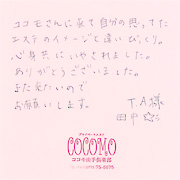 ココモさんに来て自分の思ってた
エステのイメージと違いびっくり。
心身共にいやされました。
ありがとうございました。
また来たいので
お願いします。
T.A様
田中
COCOMO
ココモ山手倶楽部
75-5575